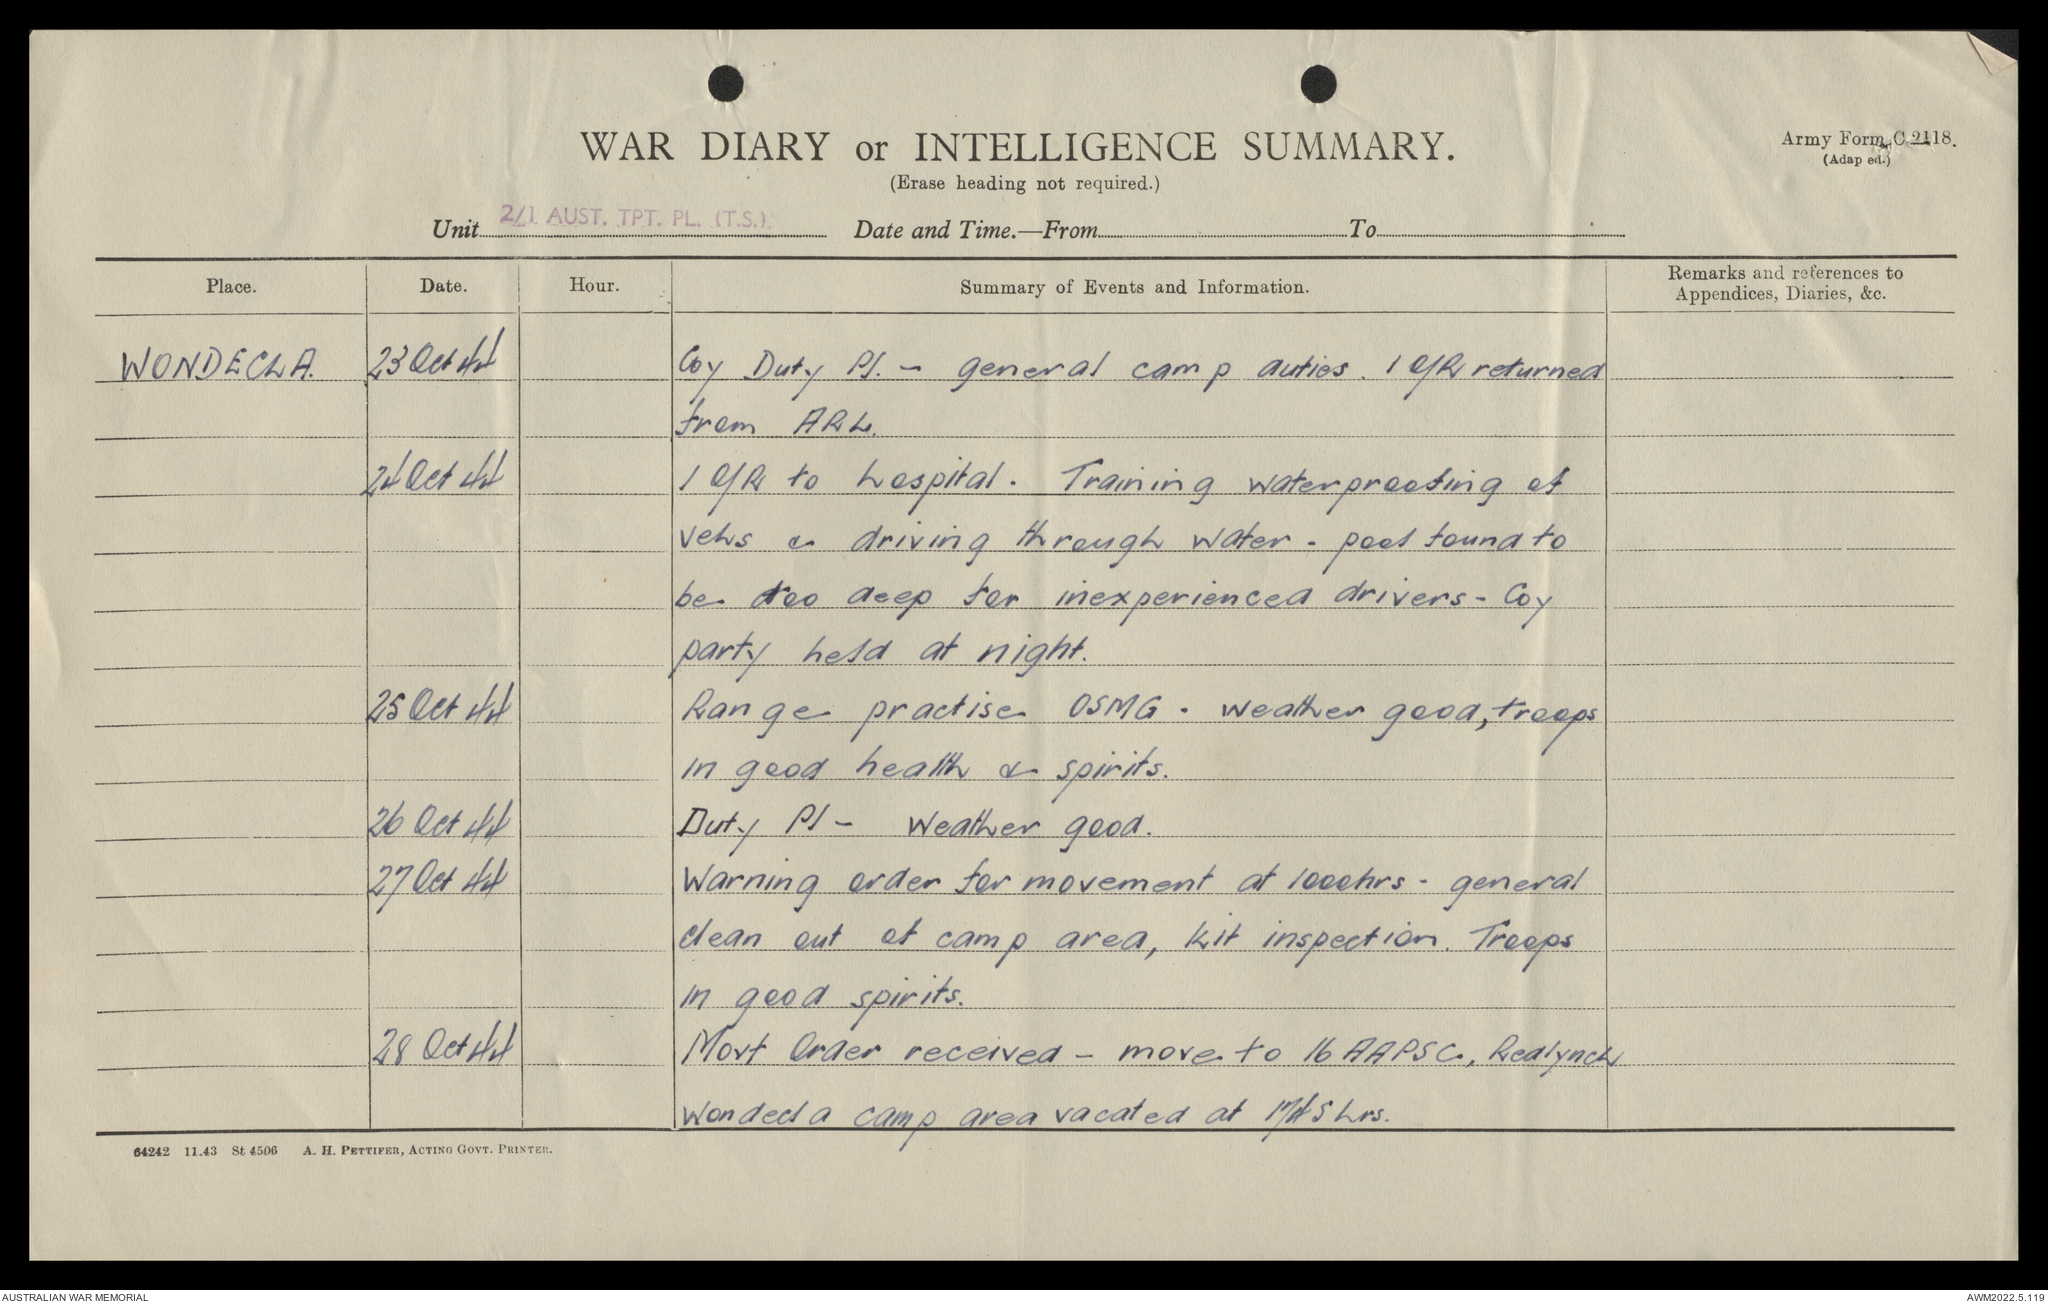 WAR DIARY or INTELLIGENCE SUMMARY.
Army Form C.2118.
(Adapted.)
(Erase heading not required.)
Unit 2/1 AUST. TPT. PL. (T.S.) Date and Time.—From To
Place. Date. Hour. Summary of Events and Information. Remarks and references to
Appendices, Diaries, &c.
WONDECLA. 23 Oct 44 Coy Duty Pl. - general camp duties. 1 O/R returned
from ARL.
24 Oct 44 1 O/R to hospital. Training waterproofing of
vehs & driving through water - pool found to
be too deep for inexperienced drivers - Coy
party held at night.
25 Oct 44 Range practise OSMG. weather good, troops
in good health & spirits.
26 Oct 44 Duty Pl - Weather good.
27 Oct 44 Warning order for movement at 1000hrs - general
clean out of camp area, kit inspection. Troops
in good spirits.
28 Oct 44 Movt Order received - move to 16 AAPSC, Redlynch
Wondecla camp area vacated at 1745hrs.
64242 11.43 St 4506 A. H. PETTIFER, ACTING GOVT. PRINTER.
AUSTRALIAN WAR MEMORIAL AWM2022.5.119